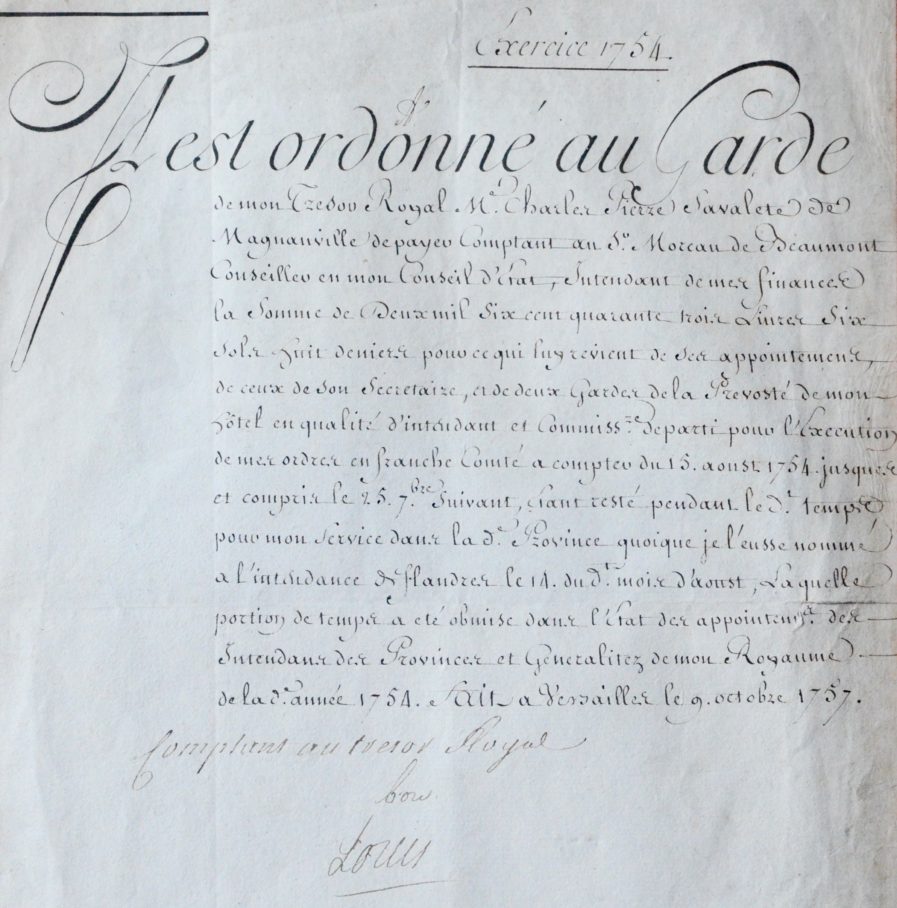 Exercice 1754.
Il est ordonné au Garde
de mon Tresor Royal Me. Charles Pierre Savalete de
Magnanville de payer Comptant au Sr. Moreau de Beaumont
Conseiller en mon Conseil d'Etat, Intendant de mes finances
la Somme de Deux mil Six cent quarante trois Livres Six
Sols huit deniers pour ce qui luy revient de ses appointemens,
de ceux de son Secretaire, et de deux Gardes de la Prevosté de mon
hôtel en qualité d'intendant et Commissre. departi pour l'Execution
de mes ordres en franche Comté a compter du 15. aoust 1754. jusques
et compris le 25. 7bre. Suivant, Etant resté pendant le dt. temps
pour mon Service dans la de. Province quoique je l'eusse nommé
a l'intendance de flandres le 14. du dt. mois d'aoust, Laquelle
portion de temps a eté obmise dans l'Etat des appointems. des
Intendans des Provinces et Generalitez de mon Royaume
de la de. année 1754. Fait a Versailles le 9. octobre 1757.
Comptant au tresor Royal
bon
Louis